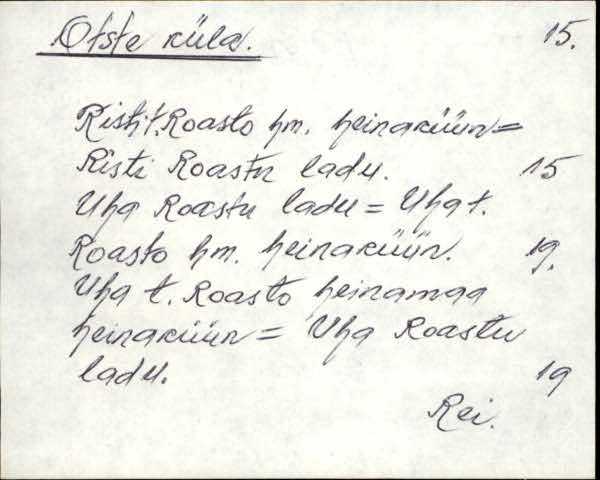 Otste küla. 15.
Risti t. Roasto hm. heinaküün=
Risti Roastu ladu. 15
Uha Roastu ladu = Uha t.
Roasto hm. heinaküün. 19.
Uha t. Roasto heinamaa
heinaküün = Uha Roastu
ladu. 19
Rei.